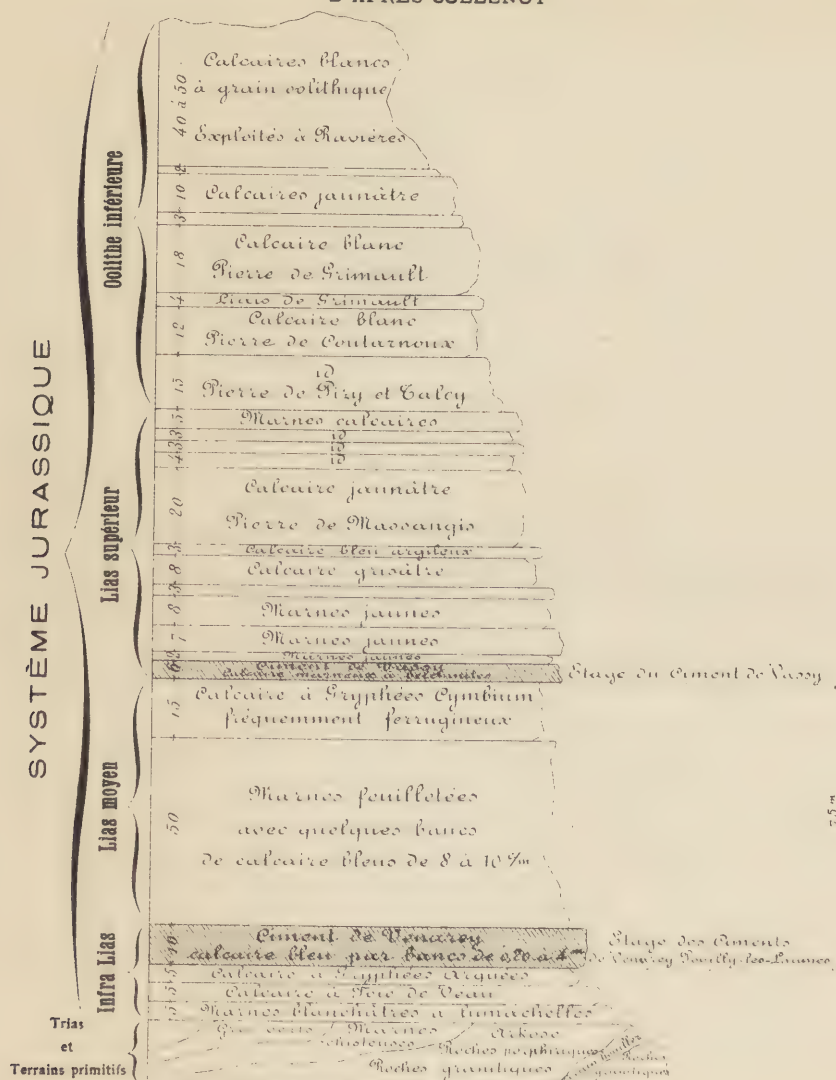 D'APRÈS COLLENOT
SYSTÈME JURASSIQUE
Oolithe inférieure
40 à 50
Calcaires blancs
à grain oolithique
Exploités à Ravières
2
10
Calcaires jaunâtre
3
18
Calcaire blanc
Pierre de Grimault
4
Liais de Grimault
12
Calcaire blanc
Pierre de Coutarnoux
15
id
Pierre de Pizy et Talcy
Lias supérieur
5
Marnes calcaires
3
id
3
id
4
id
20
Calcaire jaunâtre
Pierre de Massangis
3
Calcaire bleu argileux
8
Calcaire grisâtre
3
8
Marnes jaunes
7
Marnes jaunes
2
Marnes jaunes
6
Ciment de Vassy
Calcaire marneux à Bélemnites
Etage du Ciment de Vassy
Lias moyen
15
Calcaire à Gryphées Cymbium
fréquemment ferrugineux
50
Marnes feuilletées
avec quelques bancs
de calcaire bleus de 8 à 10 c/m
Infra Lias
10
Ciment de Venarey
calcaire bleu par bancs de 0,20 à
Etage des Ciments
de Venarey Pouilly-les-Laumes
5
Calcaire à Gryphées Arquées
5
Calcaire à Foie de Veau
5
Marnes blanchâtres à lumachelles
Trias
et
Terrains primitifs
Grès verts
Marnes
schisteuses
Arkose
Roches porphyriques
Roches granitiques
houiller
Roches
granitiques